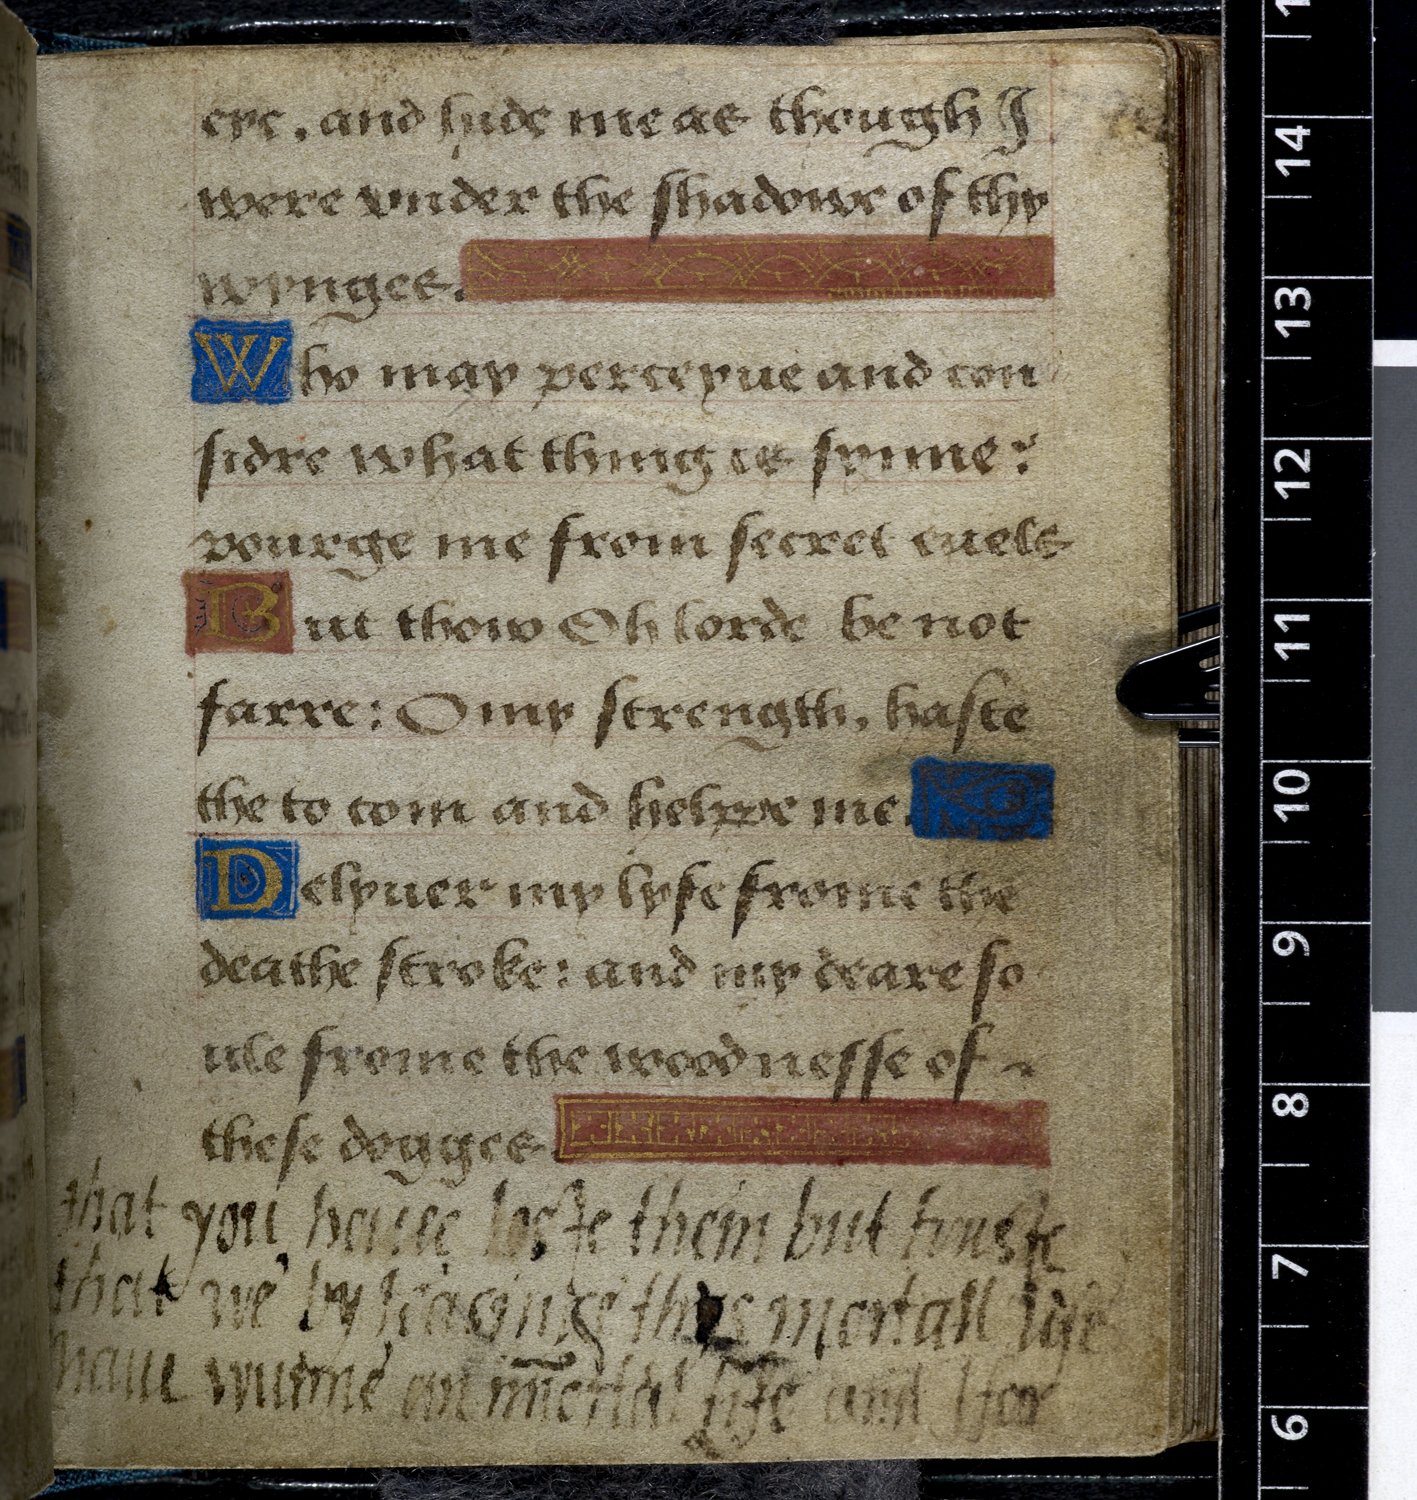 eye, and hide me as though I
were vnder the shadowe of thy
wynges.
Who may perceyue and con
sidre what thing is synne?
pourge me from secret euels
But thow Oh lorde be not
farre: O my strength, haste
the to com and helpe me.
Delyuer my lyfe frome the
deathe stroke: and my deare so
ule frome the woodnesse of
these dogges
that you haue loste them but truste
that we by leasinge this mortall life
haue wunne an immortal life and I for
14
13
12
11
10
9
8
7
6